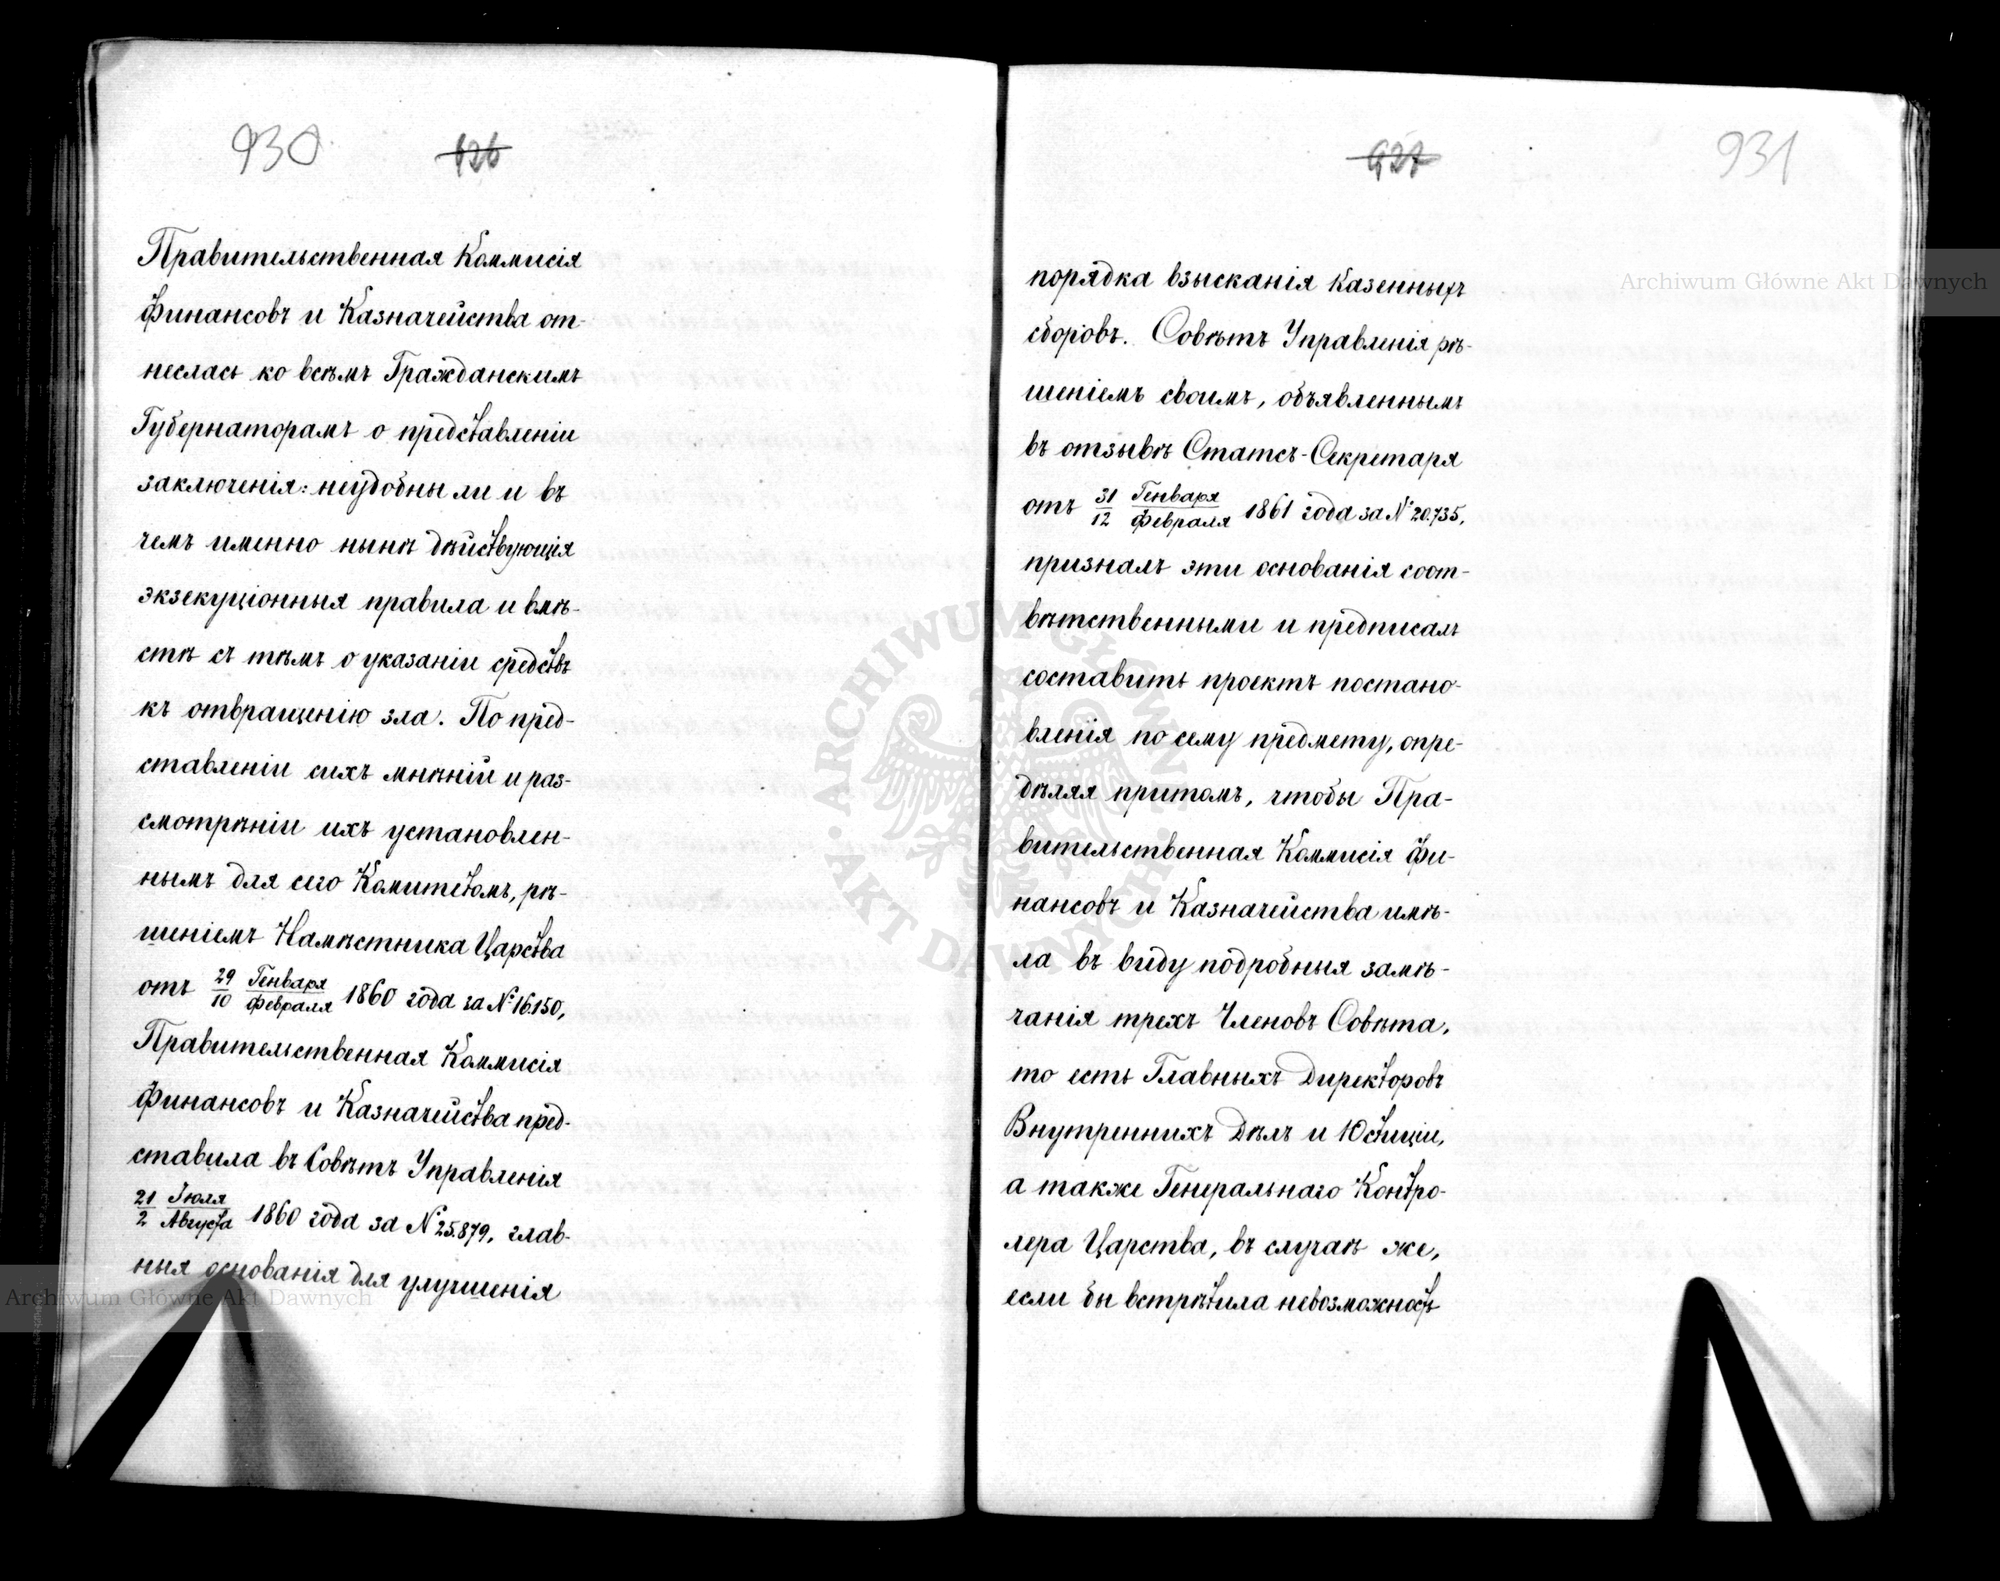 930
926
Правительственная Коммисія
Финансовъ и Казначейства от-
неслась ко всѣмъ Гражданскимъ
Губернаторамъ о представленіи
заключенія: неудобны ли и въ
чемъ именно нынѣ дѣйствующія
экзекуціонныя правила и вмѣ-
стѣ съ тѣмъ о указаніи средствъ
къ отвращенію зла. По пред-
ставленіи сихъ мнѣній и раз-
смотрѣніи ихъ установлен-
нымъ для сего Комитетомъ, рѣ-
шеніемъ Намѣстника Царства
отъ 29/10 Генваря/Февраля 1860 года за № 16.150,
Правительственная Коммисія
Финансовъ и Казначейства пред-
ставила въ Совѣтъ Управленія
21/2 Іюля/Августа 1860 года за № 25.879, глав-
ныя основанія для улучшенія
927
931
порядка взысканія казенныхъ
сборовъ. Совѣтъ Управленія рѣ-
шеніемъ своимъ, объявленнымъ
въ отзывѣ Статсъ-Секретаря
отъ 31/12 Генваря/Февраля 1861 года за № 20.735,
призналъ эти основанія соот-
вѣтственными и предписалъ
составить проектъ постано-
вленія по сему предмету, опре-
дѣляя притомъ, чтобы Пра-
вительственная Коммисія Фи-
нансовъ и Казначейства имѣ-
ла въ виду подробныя замѣ-
чанія трехъ Членовъ Совѣта,
то есть Главныхъ Директоровъ
Внутреннихъ Дѣлъ и Юстиціи,
а также Генеральнаго Контро-
лера Царства, въ случаѣ же,
если бы встрѣтила невозможность
Archiwum Główne Akt Dawnych
Archiwum Główne Akt Dawnych
ARCHIWUM GŁÓWNE AKT DAWNYCH